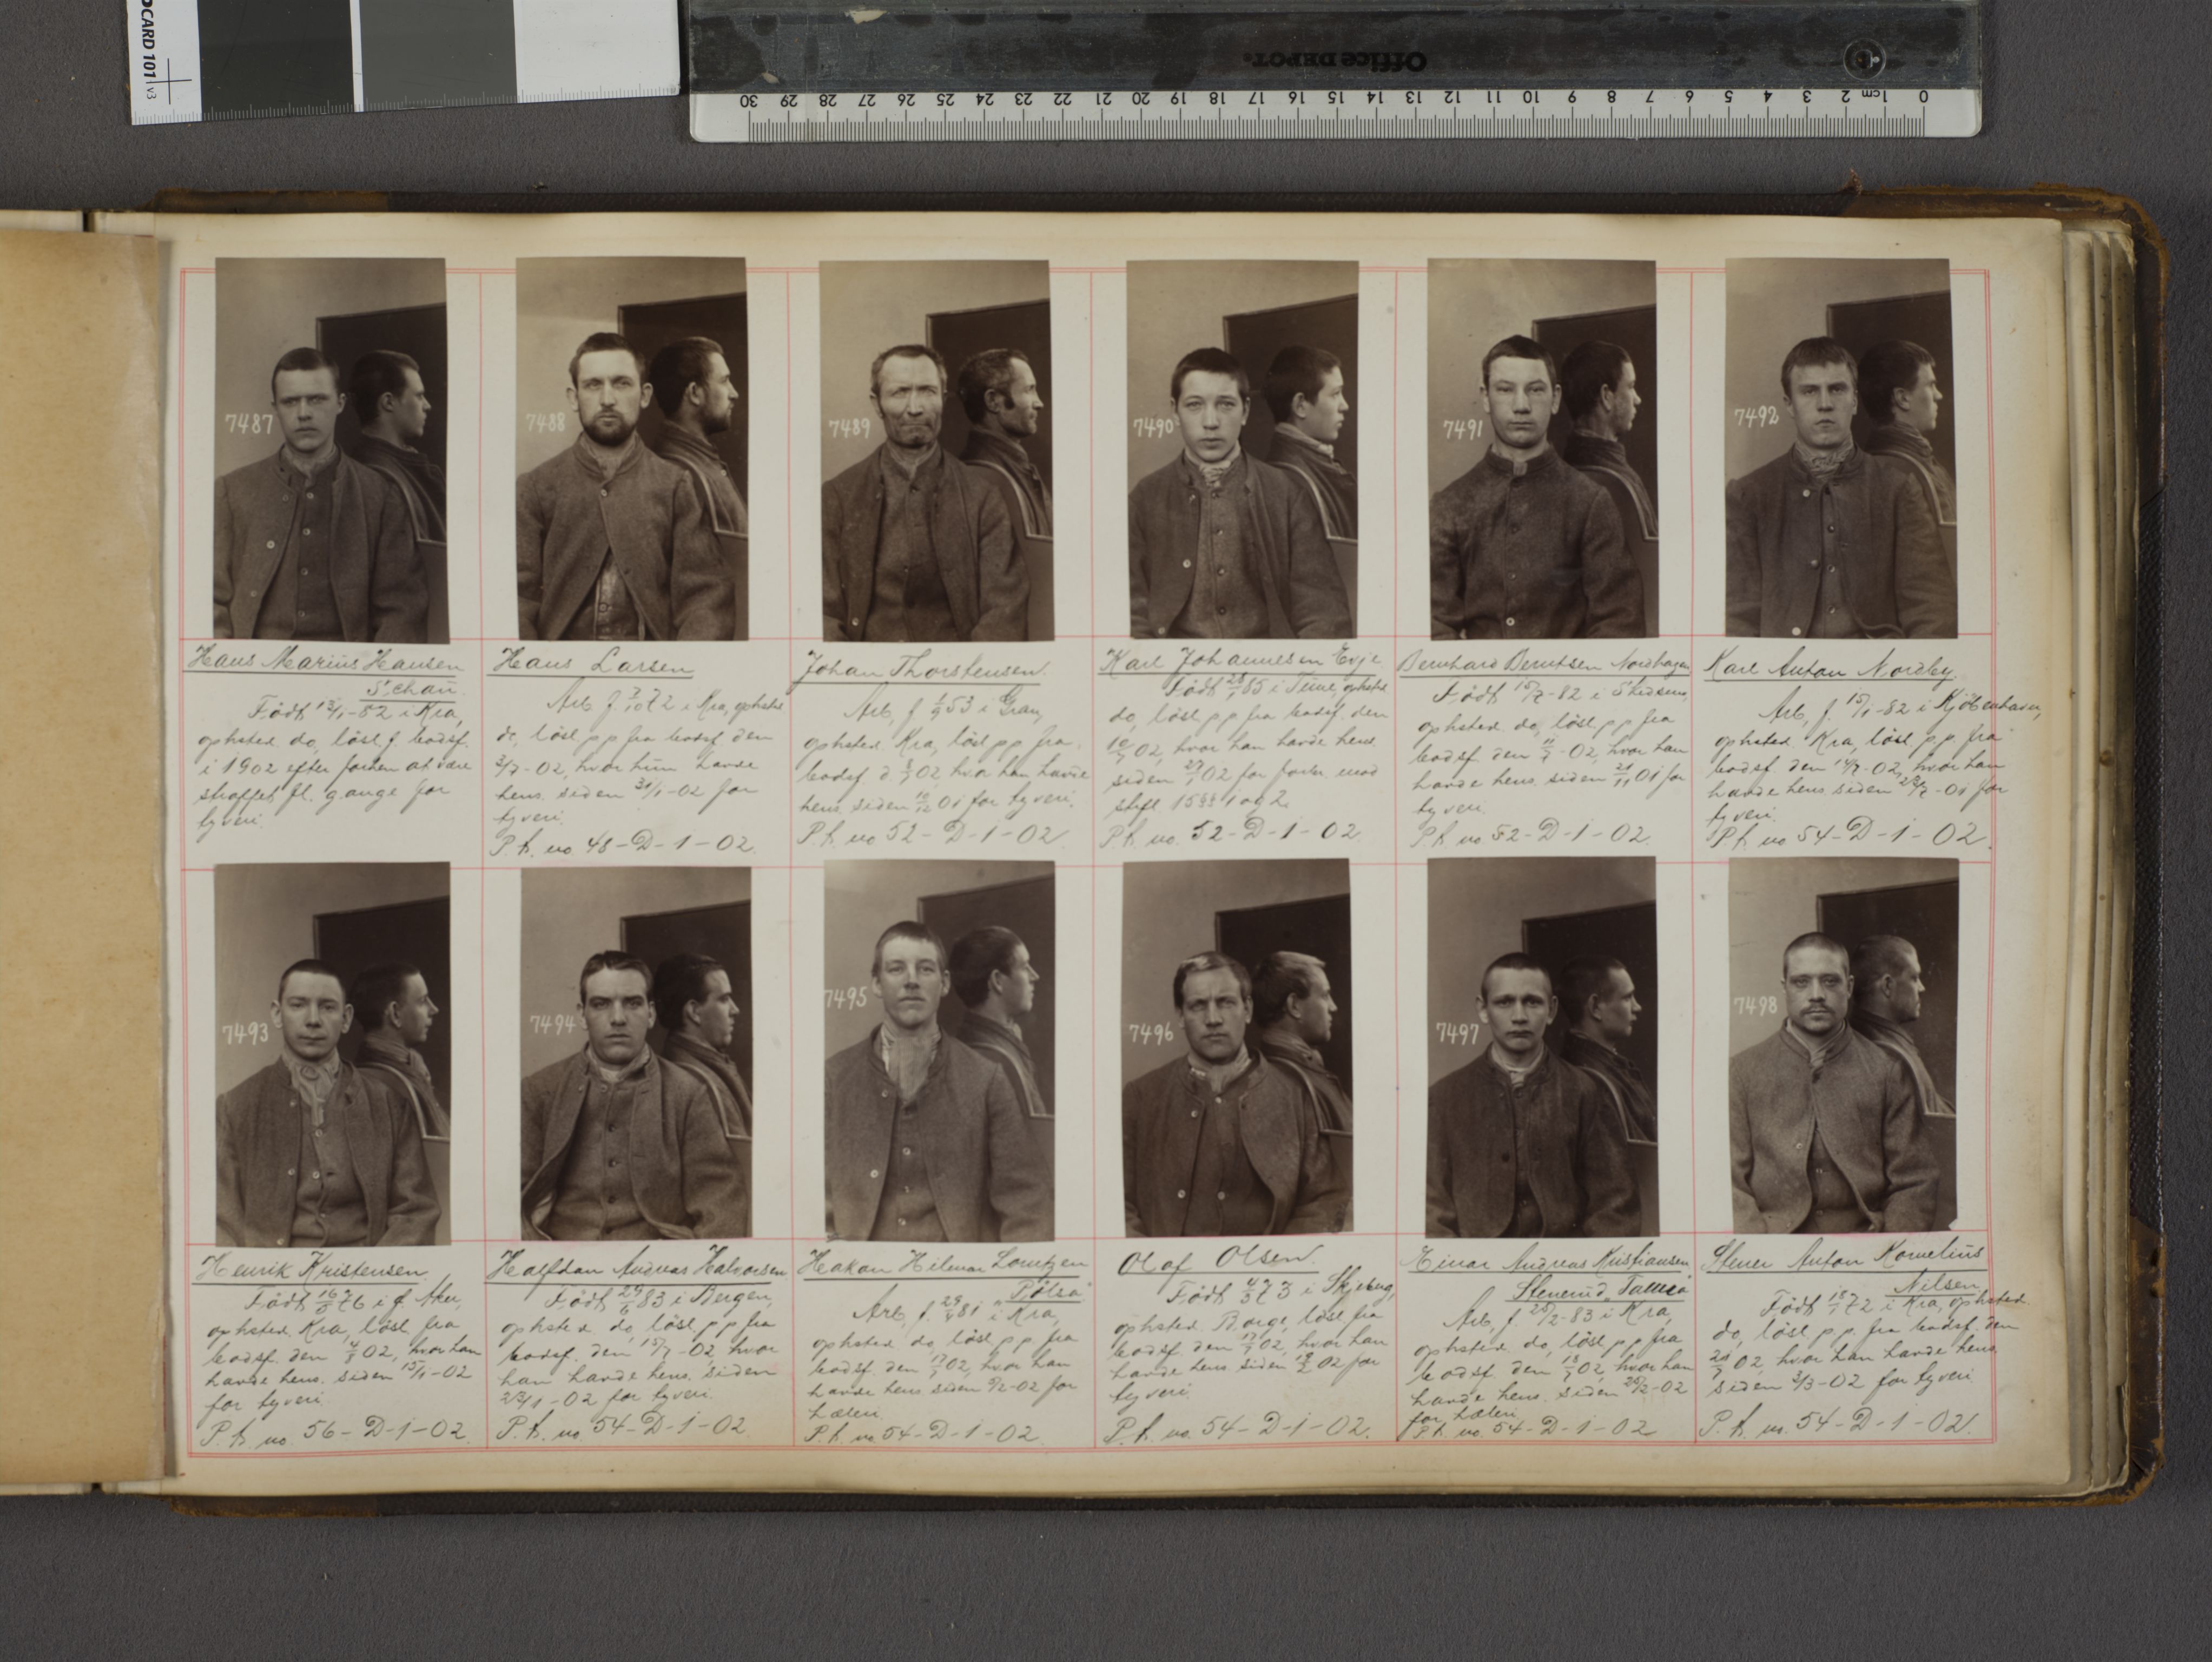 OCARD 101 v3
Office DEPOT.
0 1 cm 2 3 4 5 6 7 8 9 10 11 12 13 14 15 16 17 18 19 20 21 22 23 24 25 26 27 28 29 30
7487
7488
7489
7490
7491
7492
Hans Marius Hansen
Schau
Født 13/1-82 i Kra,
ophsted do, løsl. f. bodsf.
i 1902 efter forhen at være
straffet fl. gange for
tyveri.
Hans Larsen
Arb f 7/10 72 i Kra, ophsted
do, løsl pp fra bodsf den
3/7-02, hvor hun havde
hens. siden 31/1-02 for
tyveri.
P. k. no. 48-D-1-02.
Johan Thorstensen.
Arb, f 1/9 53 i Gran,
ophsted Kra, løsl pp fra
bodsf d. 8/7 02, hvor han havde
hens. siden 10/12 01 for tyveri.
P. k. no 52-D-1-02.
Karl Johannesen Evje
Født 28/1 85 i Tune, ophsted
do, løsl pp fra bodsf. den
10/7 02, hvor han havde hens.
siden 27/1 02 for forbr. mod
strfl. 15 §§ 1 og 2.
P. k. no. 52-D-1-02.
Bernhard Berntsen Nordhagen
Født 15/7-82 i
ophsted do, løsl pp fra
bodsf. den 11/7-02, hvor han
havde hens. siden 21/11 01 for
tyveri.
P. k. no 52-D-1-02.
Karl Anton Nordby.
Arb, f. 15/1-82 i Kjøbenhavn,
ophsted. Kra, løsl pp. fra
bodsf. den 14/7-02, hvor han
havde hens. siden -01 for
tyveri.
P. k. no 54-D-1-02.
7493
7494
7495
7496
7497
7498
Henrik Kristensen
Født 16/5 76 i Aker,
ophsted. Kra, løsl fra
bodsf. den 4/8 02, hvor han
havde hens. siden 15/1-02
for tyveri
P. k. no. 56-D-1-02.
Halfdan Andreas Halvorsen
Født 29/6 83 i Bergen,
ophsted do, løsl. pp fra
bodsf. den 15/7-02, hvor
han havde hens. siden
23/1-02 for tyveri.
P. k. no 54-D-1-02
Hakon Hilmar Lorntzen
"Pølsa"
Arb, f. 29/4 81 i Kra,
ophsted do, løsl pp fra
bodsf. den 17/7 02, hvor han
havde hens siden 9/2-02 for
hæleri.
P. k. no 54-D-1-02.
Olaf Olsen.
Født 4/3 73 i Skjeberg,
ophsted Borge, løsl fra
bodsf. den 17/7 02, hvor han
havde hens siden 18/2 02 for
tyveri.
P. k. no. 54-D-1-02.
Einar Andreas Kristiansen
Stenerud
Arb, f. 25/2-83 i Kra,
ophsted do, løsl pp fra
bodsf den 18/7 02, hvor han
havde hens. siden 20/2-02
for hæleri
P. k. no. 54-D-1-02
Stener Anton Kornelius
Nilsen
Født 18/1 72 i Kra, ophsted
do, løsl p.p. fra bodsf. den
21/7 02, hvor han havde hens.
siden 3/3-02 for tyveri
P. k. no. 54-D-1-02.